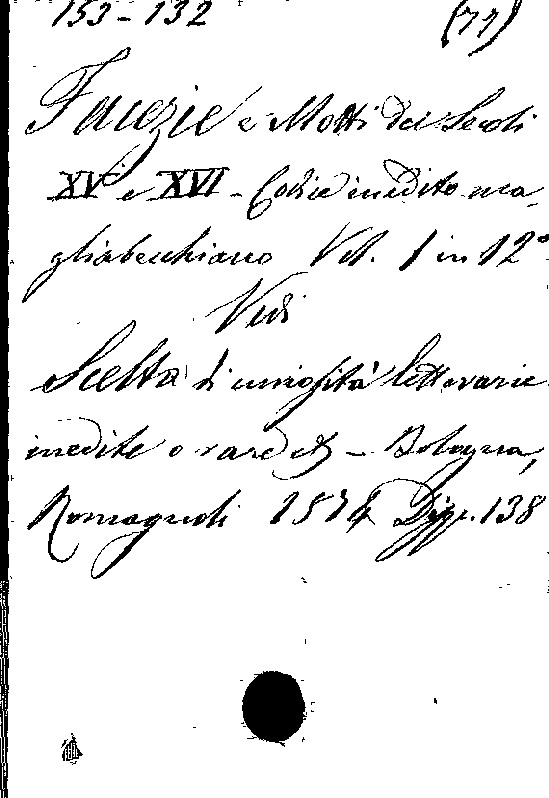 153-132 (77)
Facezie e Motti dei Secoli
XV e XVI - Codice inedito ma-
gliabechiano Vol. 1 in 12°
Vedi
Scelta di curiosità letterarie
inedite o rare etc - Bologna,
Romagnoli 1874 Disp. 138